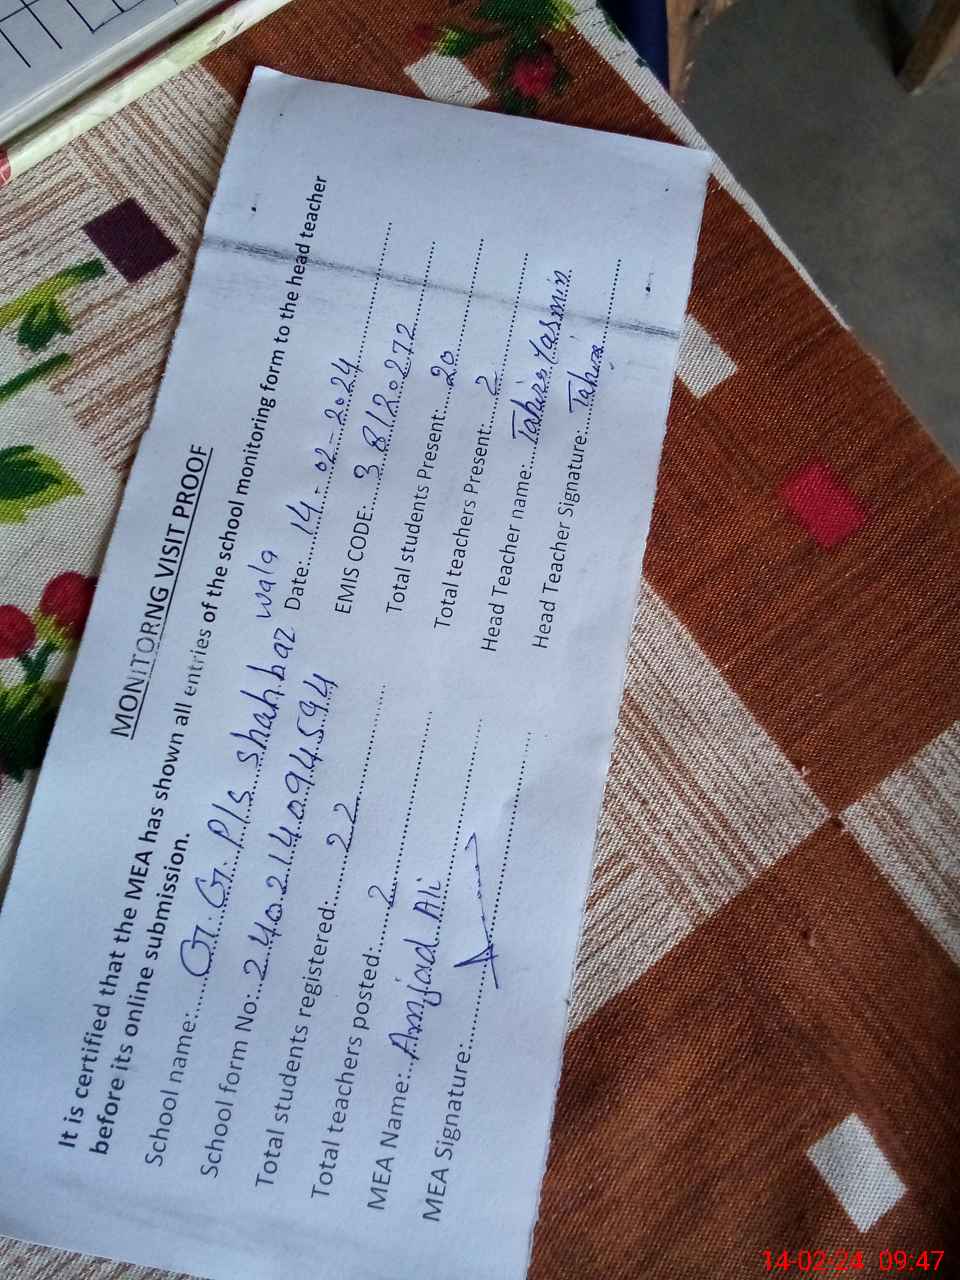 MONITORNG VISIT PROOF
It is certified that the MEA has shown all entries of the school monitoring form to the head teacher
before its online submission.
School name:.....G.G.P/S shahbaz wala
School form No:..24021409 4594 Date:.....14-02-2024
Total students registered:.....22 EMIS CODE:.....38120272
Total teachers posted:.....2 Total students Present:.....20
MEA Name:..Amjad Ali Total teachers Present:.....2
MEA Signature:..... Head Teacher name:..Tahira Yasmin
Head Teacher Signature:.....Tahira
14-02-24 09:47